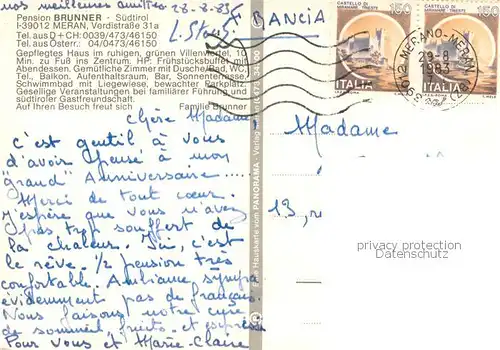 nos meilleures amitiés 28-8-83
Pension BRUNNER - Südtirol
I-39012 MERAN, Verdistraße 31a
Tel. aus D + CH: 0039/473/46150
Tel. aus Österr.: 04/0473/46150
Gepflegtes Haus im ruhigen, grünen Villenviertel, 10
Min. zu Fuß ins Zentrum. HP: Frühstücksbuffet mit
Abendessen. Gemütliche Zimmer mit Dusche/Bad, WC,
Tel., Balkon. Aufenthaltsraum, Bar, Sonnenterrasse,
Schwimmbad mit Liegewiese, bewachter Parkplatz.
Gesellige Veranstaltungen bei familiärer Führung und
südtiroler Gastfreundschaft.
Auf Ihren Besuch freut sich Familie Brunner
Chère Madame,
C'est gentil à vous
d'avoir pensé à mon
"grand" Anniversaire
Merci de tout coeur.
J'espère que vous n'avez
pas trop souffert de
la chaleur. Ici, c'est
le rêve. 1/2 pension très
confortable. Ambiance sympa
évidemment pas de français.
Nous faisons notre cure
de sommeil, fruits et
Pour Vous et Marie-Claire
Eine Hauskarte vom PANORAMA - Verlag
CASTELLO DI
MIRAMARE TRIESTE
150
ITALIA
CASTELLO DI
MIRAMARE TRIESTE
150
ITALIA
39012 MERANO-MERAN
29-8
1983
(BZ)
Madame
13, r
PRIVATPERSONEN
anonymisiert Datenschutz